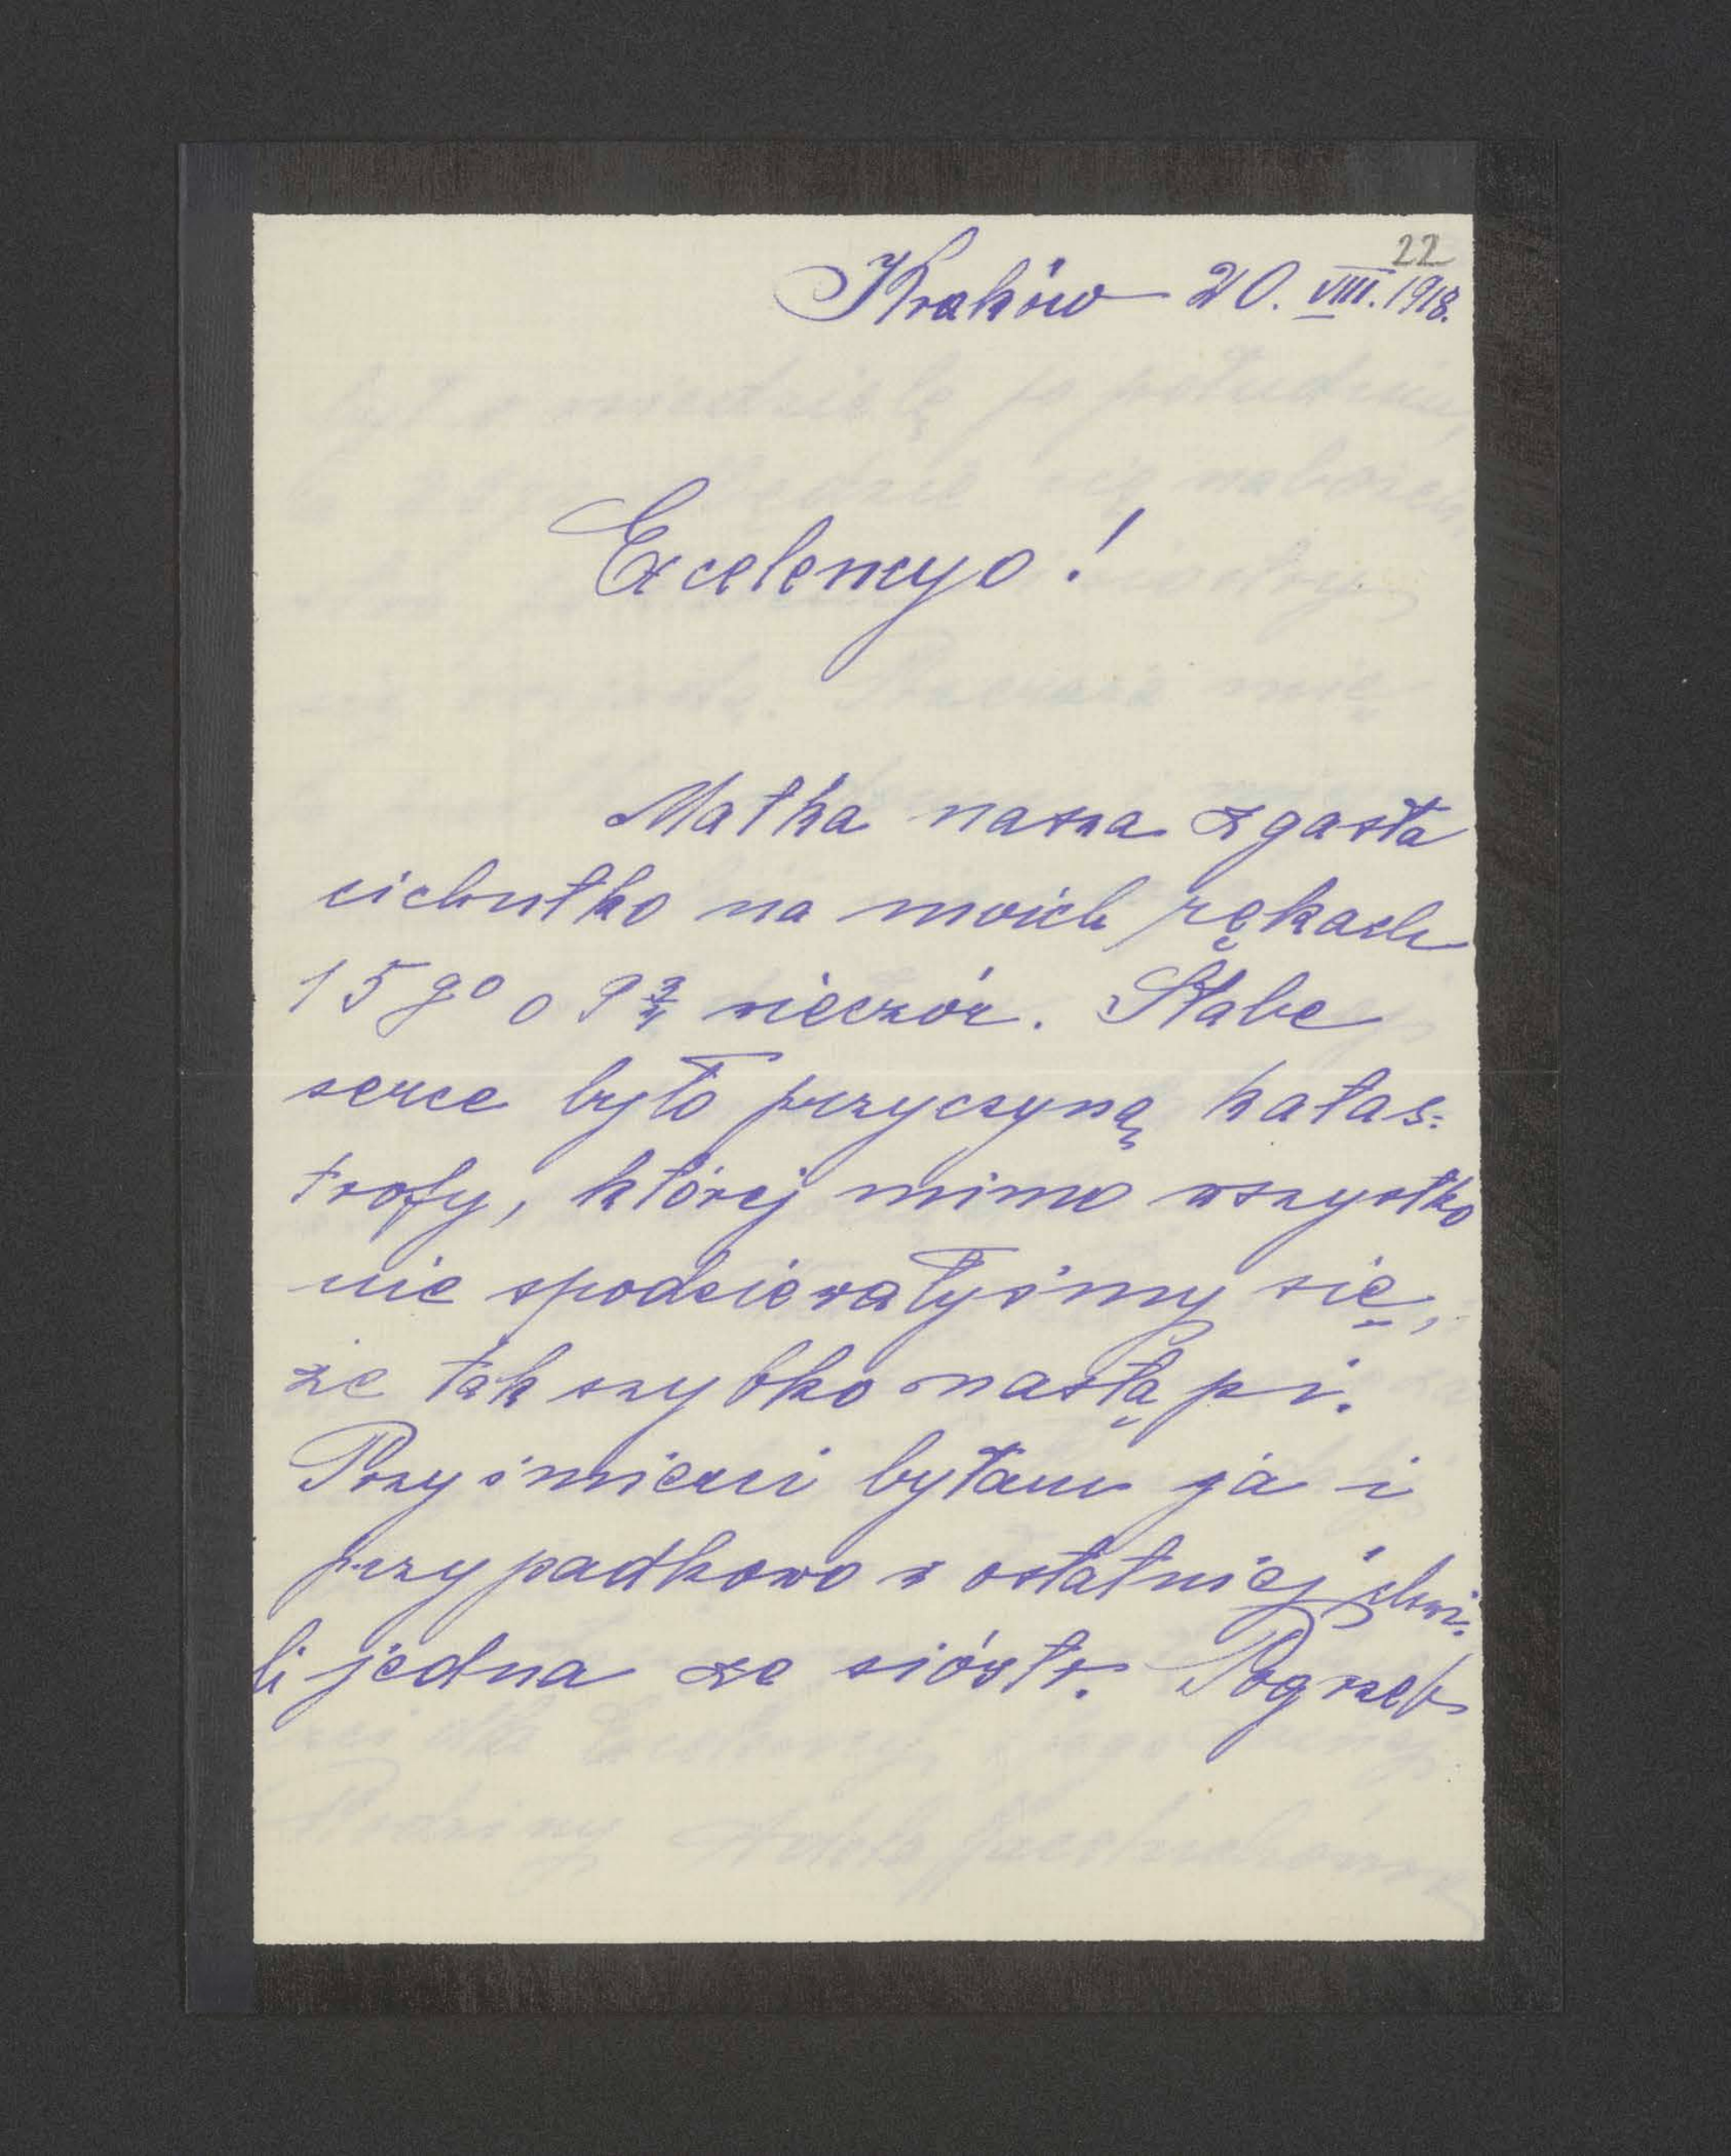 22
Kraków 20. VIII. 1918.
Excelencyo!
Matka nasza zgasła
cichutko na moich rękach
15 go o 9 3/4 wieczór. Słabe
serce było przyczyną katas-
trofy, której mimo wszystko
nie spodziewałyśmy się,
że tak szybko nastąpi.
Przy śmierci byłam ja i
przypadkowo w ostatniej chwi-
li jedna ze sióstr. Pogrzeb